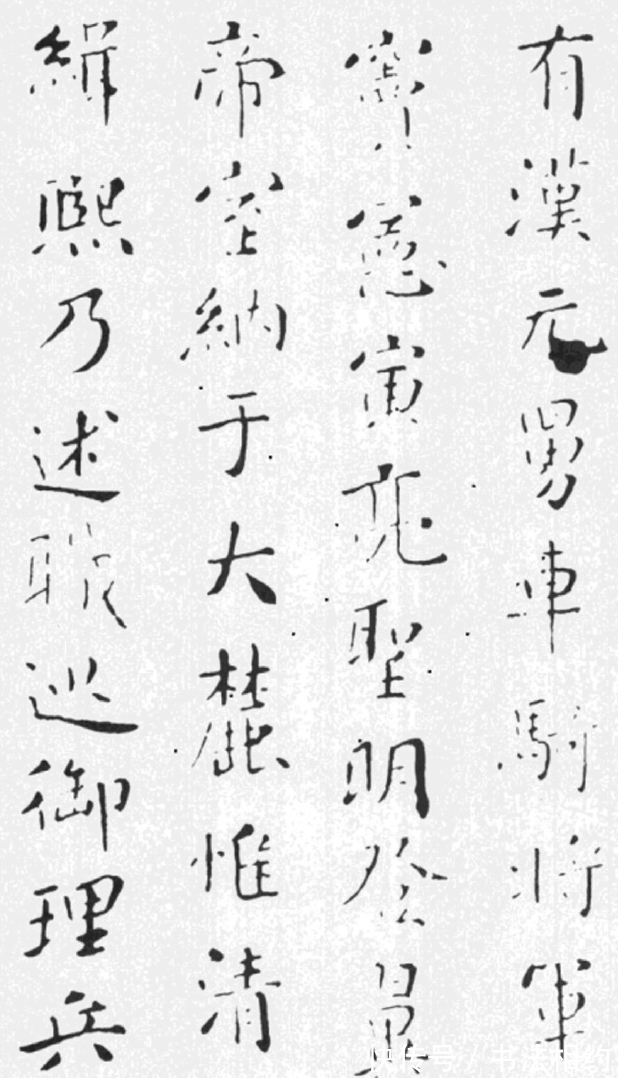 有漢元舅車騎將軍
竇憲寅亮聖明登翼
帝室納于大麓惟清
緝熙乃述職巡御理兵
快传号 // 书法